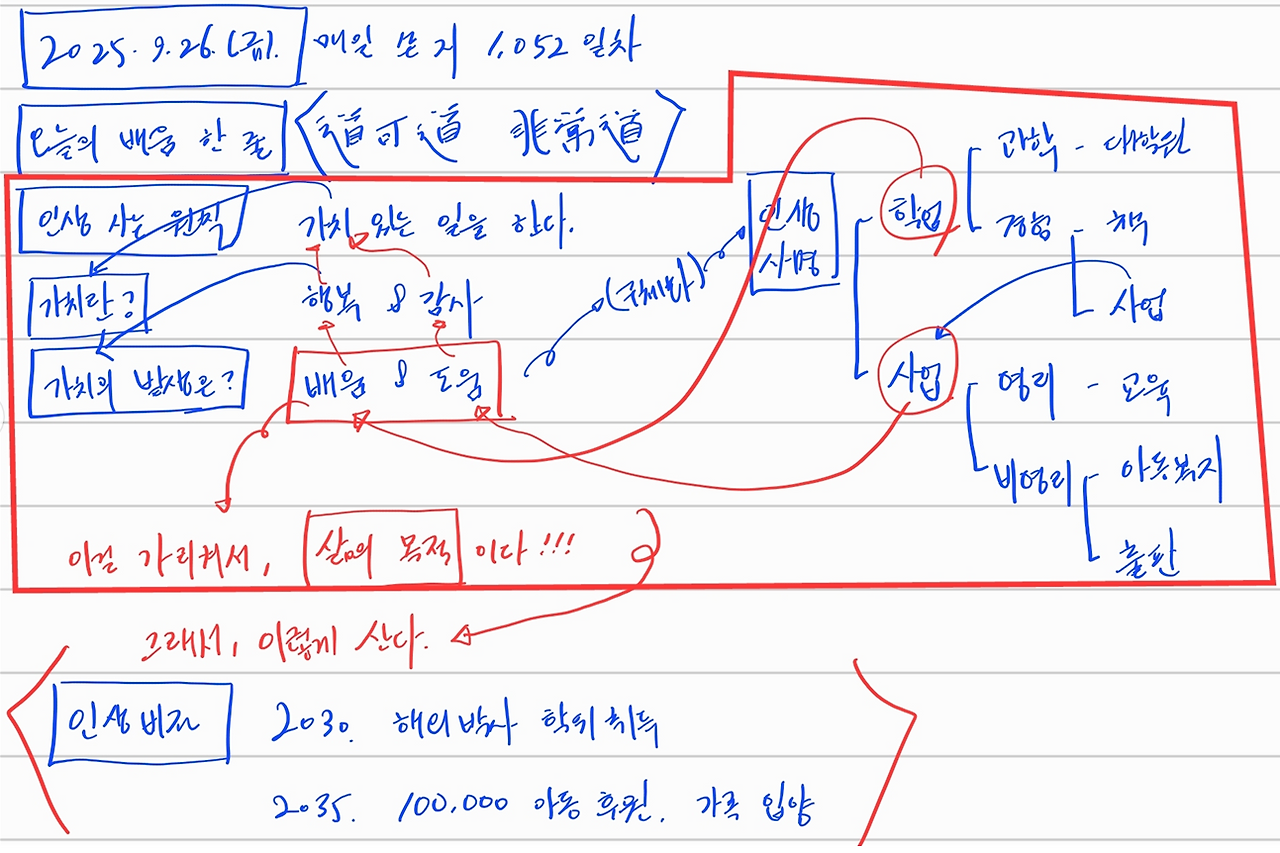 2025. 9. 26. (금). 매일 쓴 지 1,052 일차
오늘의 배움 한 줄 <道可道 非常道>
인생 사는 원칙 가치 있는 일을 한다.
가치란? 행복 & 감사
가치의 발생은? 배움 & 도움
(구체화)
인생
사명
학업
과학 - 대학원
경험 - 책
사업
사업
영리 - 교육
비영리 - 아동복지
출판
이걸 가리켜서, 삶의 목적 이다!!!
그래서, 이렇게 산다.
인생비전 2030. 해외박사 학위취득
2035. 100,000 아동 후원. 가족 입양